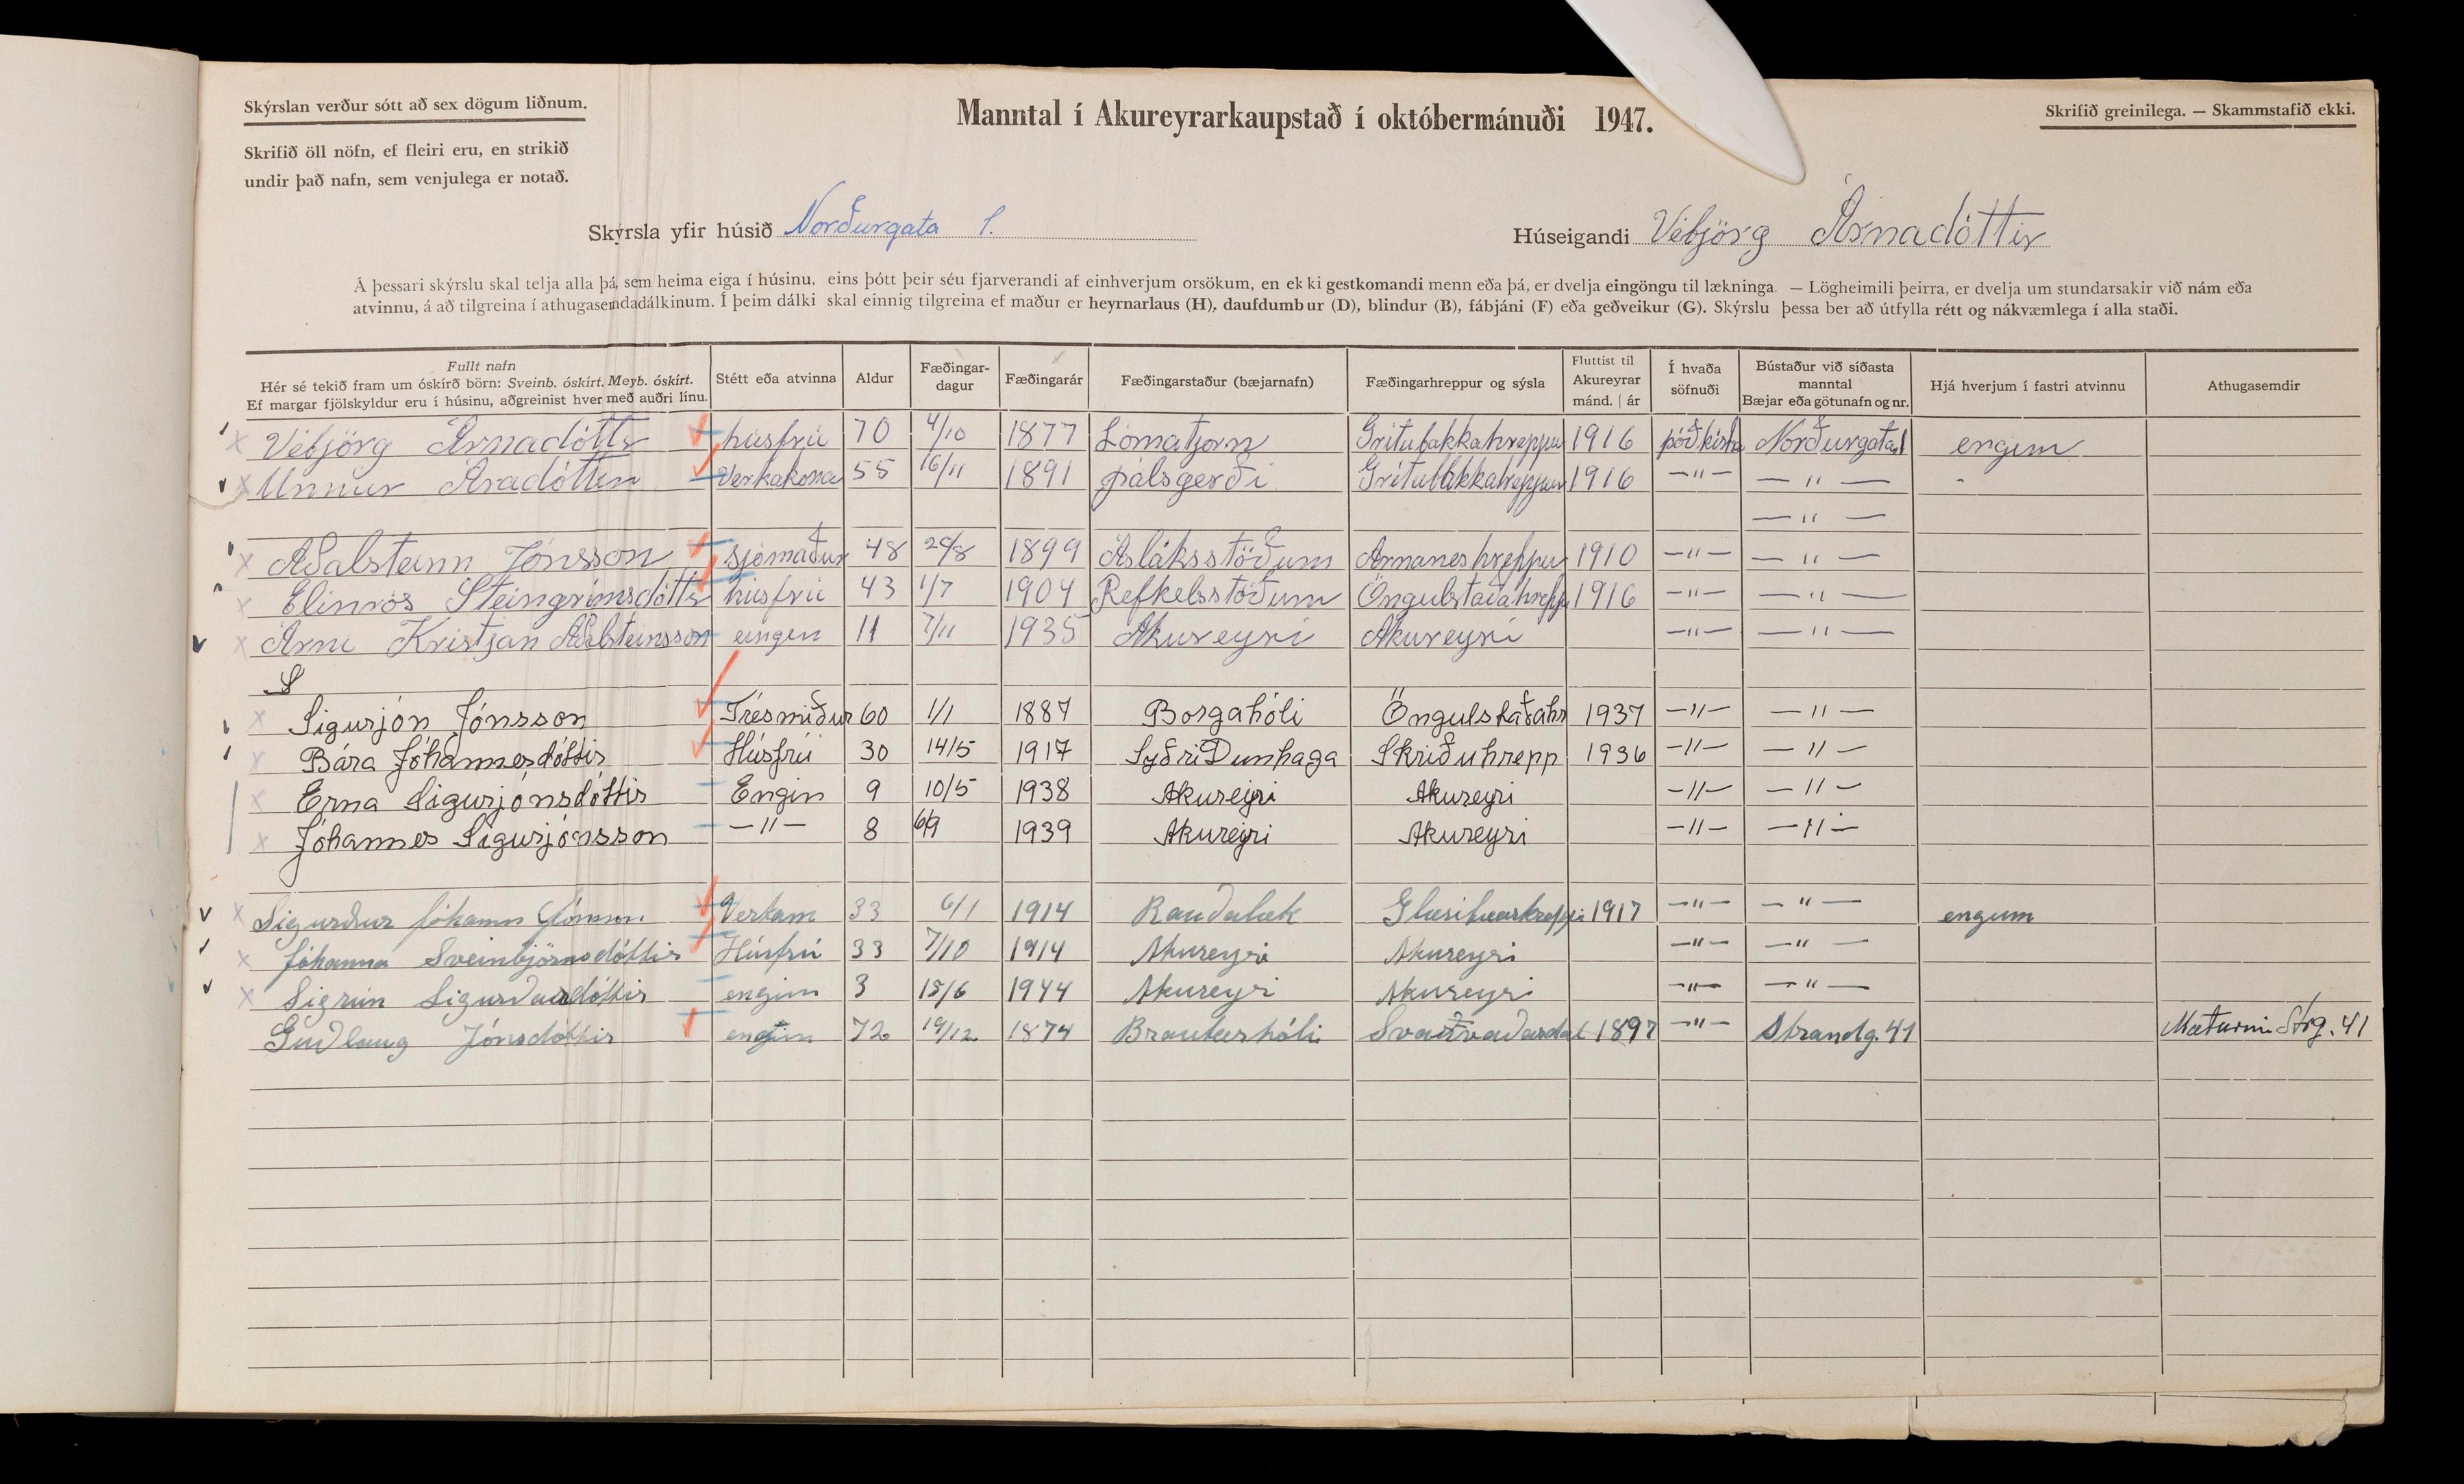 Skýrslan verður sótt að sex dögum liðnum.
Manntal í Akureyrarkaupstað í októbermánuði 1947.
Skrifið greinilega. — Skammstafið ekki.
Skrifið öll nöfn, ef fleiri eru, en strikið
undir það nafn, sem venjulega er notað.
Skýrsla yfir húsið Norðurgata 1.
Húseigandi Vébjörg Árnadóttir
Á þessari skýrslu skal telja alla þá, sem heima eiga í húsinu, eins þótt þeir séu fjarverandi af einhverjum orsökum, en ekki gestkomandi menn eða þá, er dvelja eingöngu til lækninga. — Lögheimili þeirra, er dvelja um stundarsakir við nám eða
atvinnu, á að tilgreina í athugasemdadálkinum. Í þeim dálki skal einnig tilgreina ef maður er heyrnarlaus (H), daufdumbur (D), blindur (B), fábjáni (F) eða geðveikur (G). Skýrslu þessa ber að útfylla rétt og nákvæmlega í alla staði.
Fullt nafn
Hér sé tekið fram um óskírð börn: Sveinb. óskírt. Meyb. óskírt.
Ef margar fjölskyldur eru í húsinu, aðgreinist hver með auðri línu.
Stétt eða atvinna
Aldur
Fæðingar-
dagur
Fæðingarár
Fæðingarstaður (bæjarnafn)
Fæðingarhreppur og sýsla
Fluttist til
Akureyrar
mánd. | ár
Í hvaða
söfnuði
Bústaður við síðasta
manntal
Bæjar eða götunafn og nr.
Hjá hverjum í fastri atvinnu
Athugasemdir
Vébjörg Árnadóttir húsfrú 70 4/10 1877 Lómatjorn Grítubakkahreppur 1916 þóðkirka Norðurgata 1 engum
Unnur Aradóttir Verkakona 55 16/11 1891 pálsgerði Grítubakkahreppur 1916 —"— —"—
—"—
Aðalsteinn Jónsson sjómaður 48 /8 1899 Ásláksstöðum Arnaneshreppur 1910 —"— —"—
Elinrós Steingrímsdóttir húsfrú 43 1/7 1904 Refkelsstöðum Öngulstaðahrepp 1916 —"— —"—
Árni Kristjan Aðalsteinsson eingen 11 7/11 1935 Akureyri Akureyri —"— —"—
S
Sigurjón Jónsson Trésmiður 60 1/1 1887 Borgahóli Öngulstaðahr 1937 —"— —"—
Bára Jóhannesdóttir Húsfrú 30 14/5 1917 Syðri Dunhaga Skriðuhrepp 1936 —"— —"—
Erna Sigurjónsdóttir Engin 9 10/5 1938 Akureyri Akureyri —"— —"—
Jóhannes Sigurjónsson —"— 8 6/9 1939 Akureyri Akureyri —"— —"—
Sigurður Jóhann Jónsson Verkam 33 6/1 1914 Rauðalæk Glæsibæarhreppi 1917 —"— —"— engum
Jóhanna Sveinbjörnsdóttir Húsfrú 33 7/10 1914 Akureyri Akureyri —"— —"—
Sigrún Sigurðardóttir engin 3 15/6 1944 Akureyri Akureyri —"— —"—
Guðlaug Jónsdóttir engin 72 19/12 1874 Brautarhóli Svarfvaðardal 1897 —"— Strandg. 41 Mæturni Strg. 41